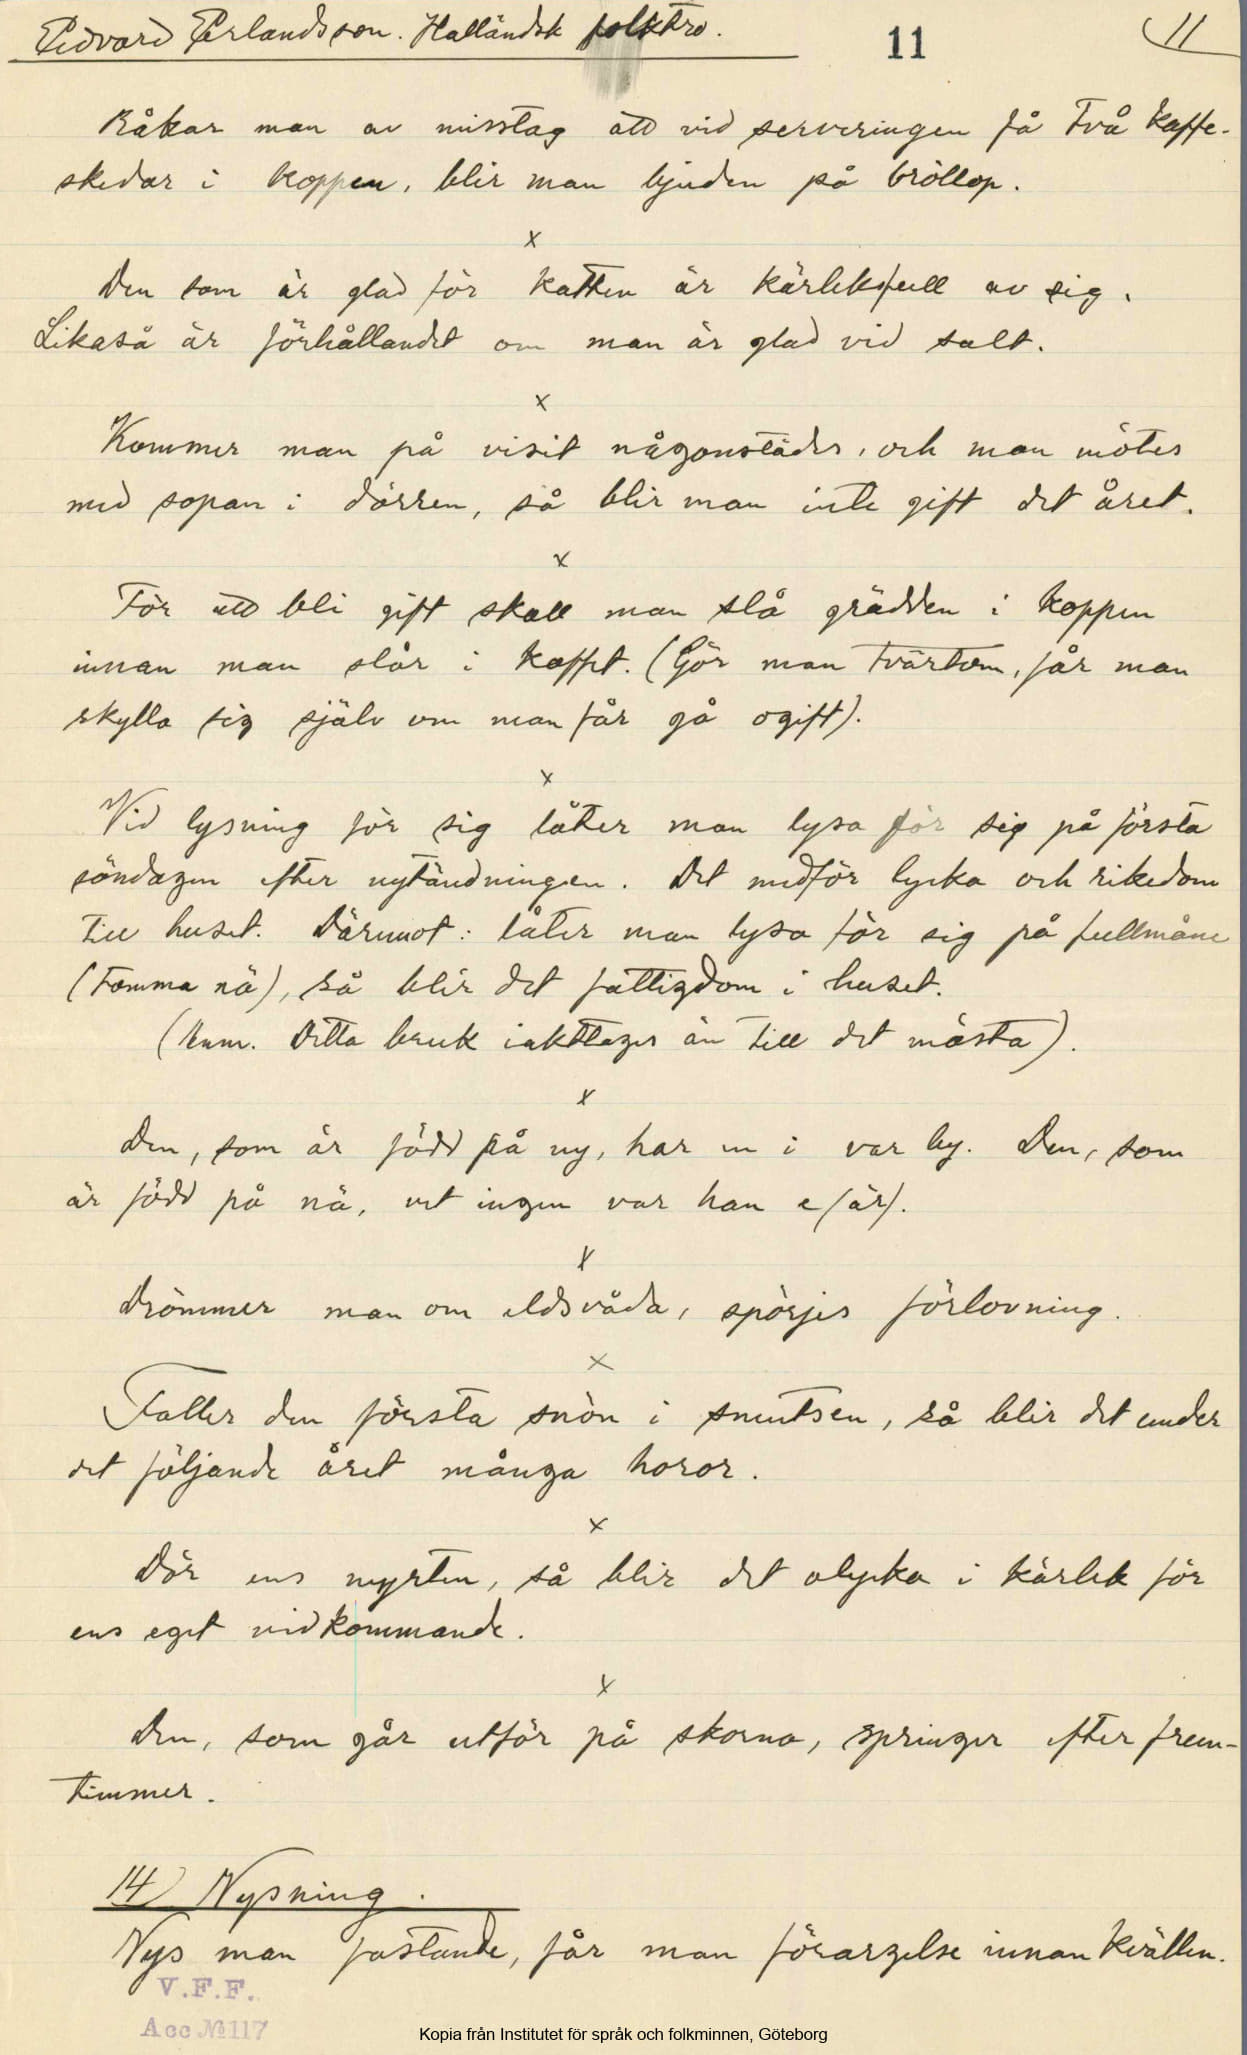 Edvard Erlandsson. Halländsk folktro.
11
11
Råkar man av misstag att vid serveringen få två kaffe-
skedar i koppen, blir man bjuden på bröllop.
x
Den som är glad för katten är kärleksfull av sig.
Likaså är förhållandet om man är glad vid salt.
x
Kommer man på visit någonstädes, och man mötes
med sopan i dörren, så blir man inte gift det året.
x
För att bli gift skall man slå grädden i koppen
innan man slår i kaffet. (Gör man tvärtom, får man
skylla sig själv om man får gå ogift).
x
Vid lysning för sig låter man lysa för sig på första
söndagen efter nytändningen. Det medför lycka och rikedom
till huset. Däremot: låter man lysa för sig på fullmåne
(tomma nä), så blir det fattigdom i huset.
(Anm. Detta bruk iakttages än till det mästa).
x
Den, som är född på ny, har en i var by. Den, som
är född på nä, vet ingen var han e /är/.
x
Drömmer man om eldsvåda, spörjes förlovning.
x
Faller den första snön i smutsen, så blir det under
det följande året många horor.
x
Dör ens myrten, så blir det olycka i kärlek för
ens eget vidkommande.
x
Den, som går utför på skorna, springer efter fruen-
timmer.
14) Nysning.
Nys man fastande, får man förargelse innan kvällen.
V.F.F.
Acc № 117
Kopia från Institutet för språk och folkminnen, Göteborg